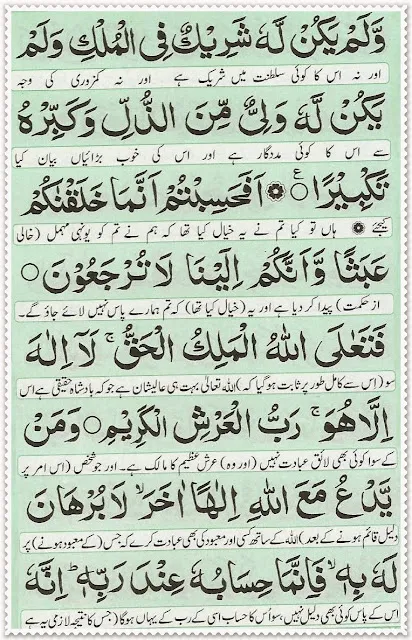 وَّلَمْ يَكُنْ لَّهٗ شَرِيْكٌ فِي الْمُلْكِ وَلَمْ
اور نہ اس کا کوئی سلطنت میں شریک ہے اور نہ کمزوری کی وجہ
يَكُنْ لَّهٗ وَلِيٌّ مِّنَ الذُّلِّ وَكَبِّرْهُ
سے اس کا کوئی مددگار ہے اور اس کی خوب بڑائیاں بیان کیا
تَكْبِيْرًا ○ع اَفَحَسِبْتُمْ اَنَّمَا خَلَقْنٰكُمْ
کیجئے ہاں تو کیا تم نے یہ خیال کیا تھا کہ ہم نے تم کو یونہی مہمل (خالی
عَبَثًا وَّاَنَّكُمْ اِلَيْنَا لَا تُرْجَعُوْنَ ○
از حکمت) پیدا کر دیا ہے اور یہ (خیال کیا تھا) کہ تم ہمارے پاس نہیں لائے جاؤ گے۔
فَتَعٰلَى اللّٰهُ الْمَلِكُ الْحَقُّ ۚ لَآ اِلٰهَ
سو (اس سے کامل طور پر ثابت ہو گیا کہ) اللہ تعالیٰ بہت ہی عالیشان ہے جو کہ بادشاہ حقیقی ہے اس
اِلَّا هُوَ ۚ رَبُّ الْعَرْشِ الْكَرِيْمِ ○ وَمَنْ
کے سوا کوئی بھی لائق عبادت نہیں (اور وہ) عرش عظیم کا مالک ہے۔ اور جو شخص (اس امر پر
يَّدْعُ مَعَ اللّٰهِ اِلٰهًا اٰخَرَ ۙ لَا بُرْهَانَ
دلیل قائم ہونے کے بعد) اللہ کے ساتھ کسی اور معبود کی بھی عبادت کرے کہ جس (کے معبود ہونے) پر
لَهٗ بِهٖ ۙ فَاِنَّمَا حِسَابُهٗ عِنْدَ رَبِّهٖ ؕ اِنَّهٗ
اس کے پاس کوئی بھی دلیل نہیں، سو اُس کا حساب اسی کے رب کے یہاں ہوگا (جس کا نتیجہ لازمی یہ ہے